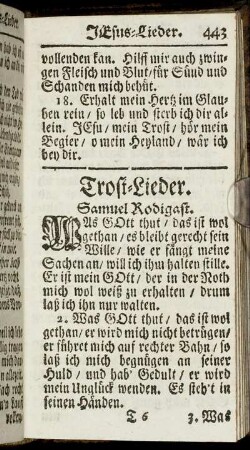 JEsus-Lieder. 443
vollenden kan. Hilff mir auch zwin-
gen Fleisch und Blut/ für Sünd und
Schanden mich behüt.
18. Erhalt mein Hertz im Glau-
ben rein/ so leb und sterb ich dir al-
lein. JEsu/ mein Trost/ hör mein
Begier/ o mein Heyland/ wär ich
bey dir.
Trost-Lieder.
Samuel Rodigast.
WAs GOtt thut/ das ist wol
gethan/ es bleibt gerecht sein
Wille/ wie er fängt meine
Sachen an/ will ich ihm halten stille.
Er ist mein GOtt/ der in der Noth
mich wol weiß zu erhalten/ drum
laß ich ihn nur walten.
2. Was GOtt thut/ das ist wol
gethan/ er wird mich nicht betrügen/
er führet mich auf rechter Bahn/ so
laß ich mich begnügen an seiner
Huld/ und hab' Gedult/ er wird
mein Unglück wenden. Es steh't in
seinen Händen.
T 6 3. Was